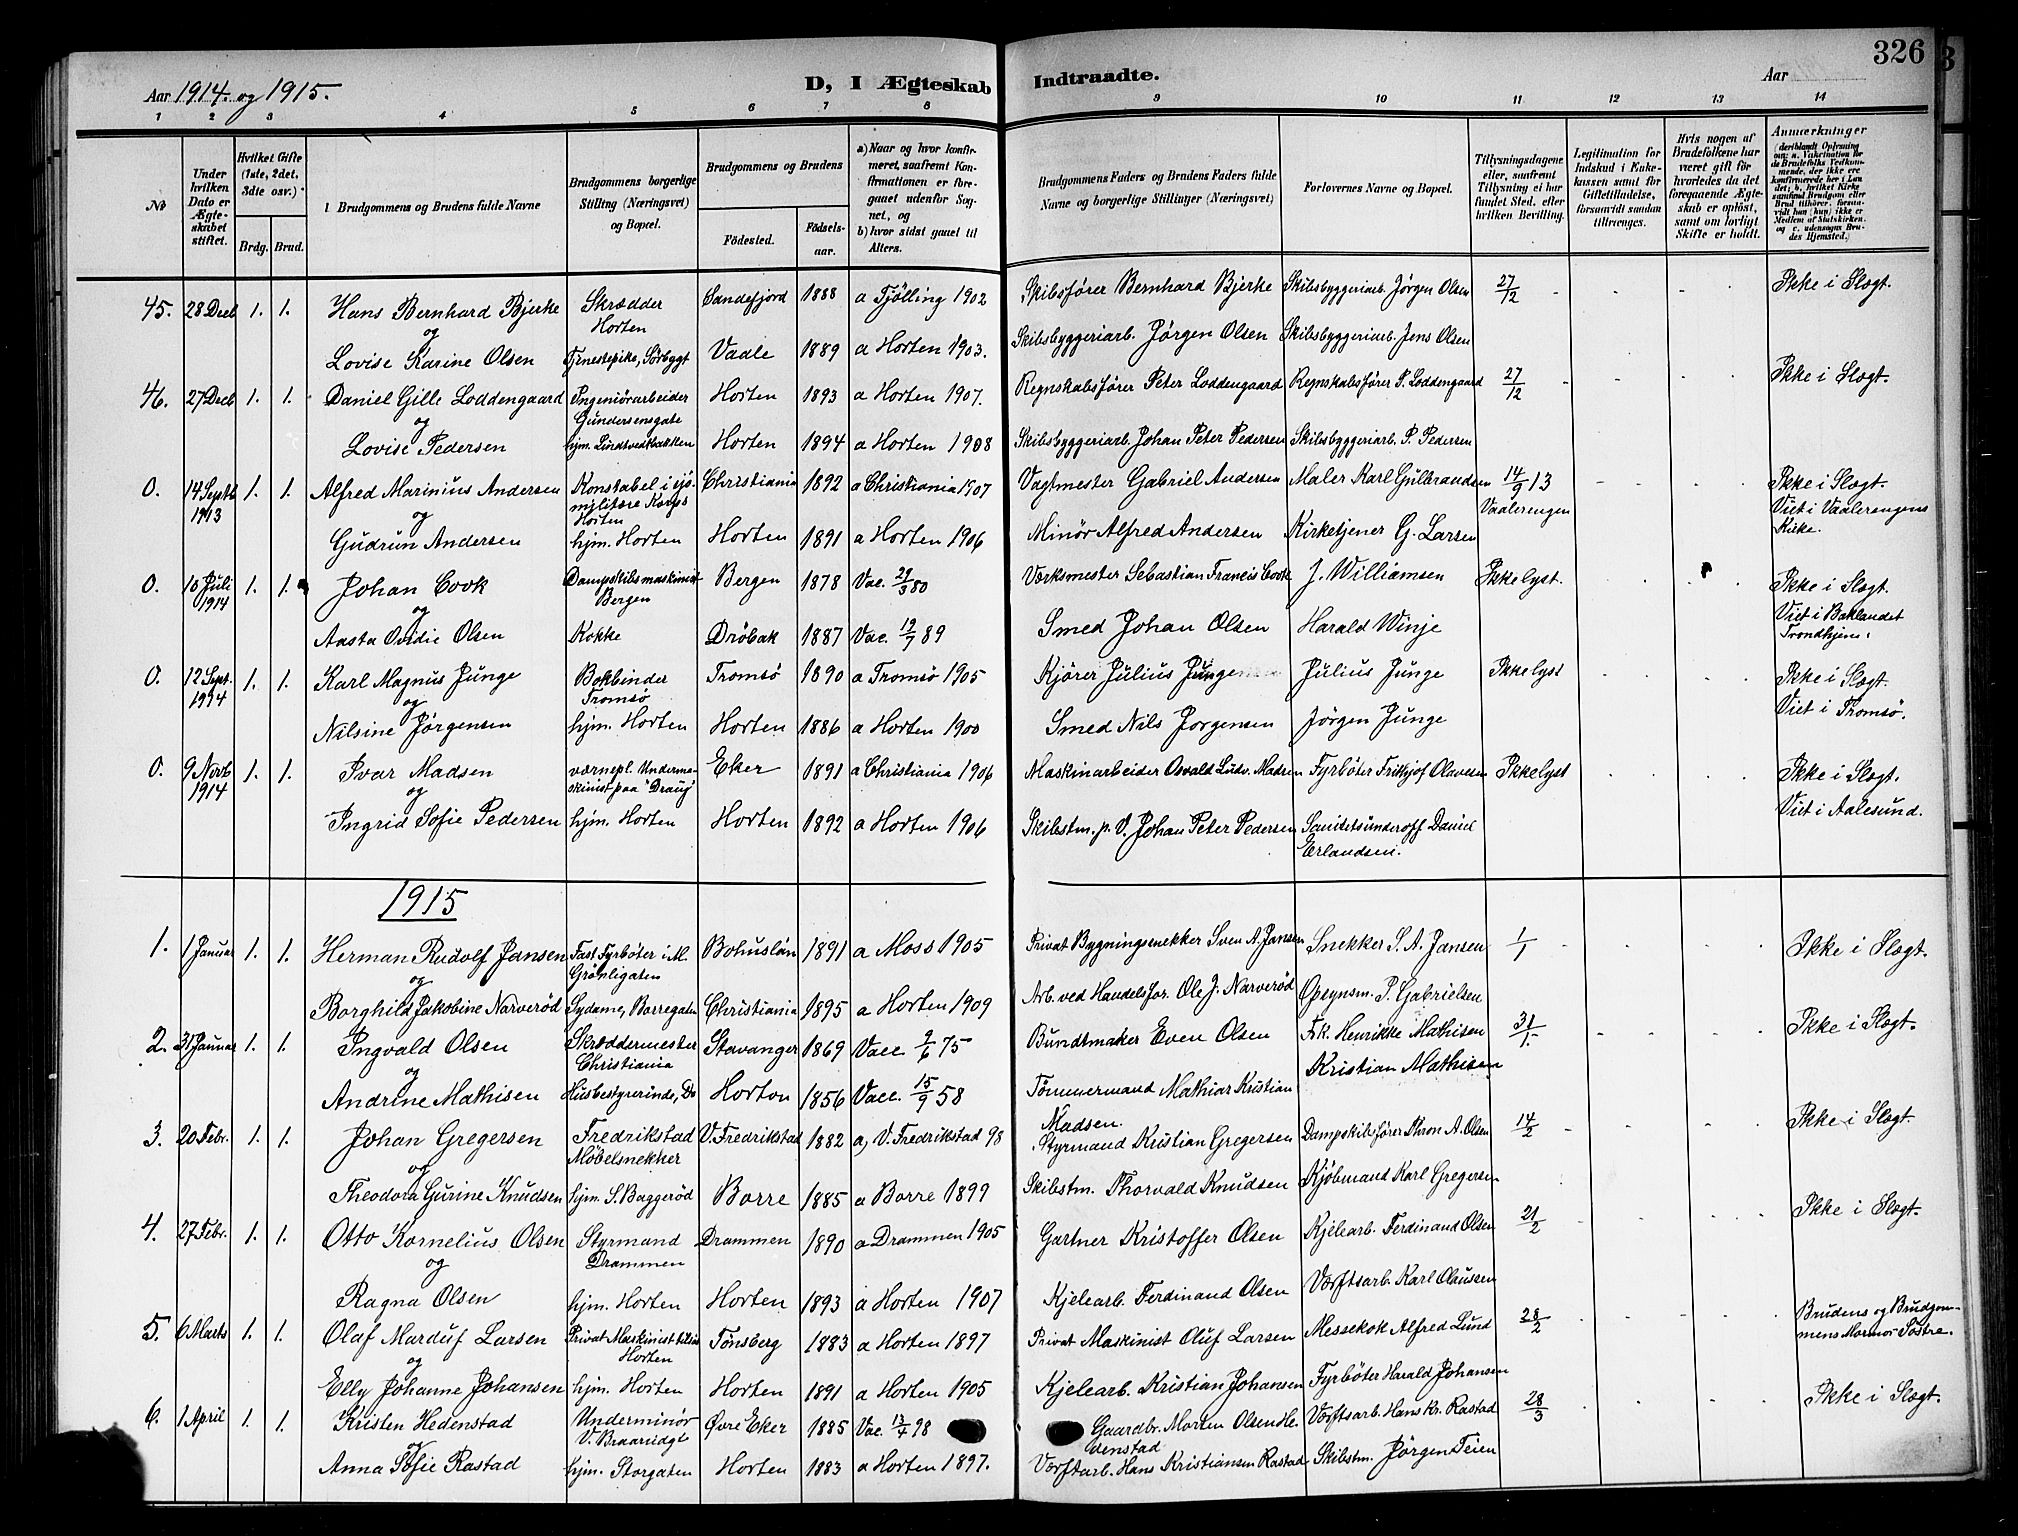 326
Aar 1914. og 1915.
D, I Ægteskab Indtraadte.
Aar
1 2 3 4 5 6 7 8 9 10 11 12 13 14
No
Under hvilken Dato er Ægteskabet stiftet.
Hvilket Gifte (1ste, 2det, 3die osv.)
Brdg. Brud.
Brudgommens og Brudens fulde Navne
Brudgommens borgerlige Stilling (Næringsvei) og Bopæl.
Brudgommens og Brudens
Fødested. Fødselsaar.
a) Naar og hvor konfirmeret, saafremt Konfirmationen er foregaaet udenfor Sognet, og
b) hvor sidst gaaet til Alters.
Brudgommens Faders og Brudens Faders fulde Navne og borgerlige Stillinger (Næringsvei)
Forlovernes Navne og Bopæl.
Tillysningsdagene eller, saafremt Tillysning ei har fundet Sted, efter hvilken Bevilling.
Legitimation for Indskud i Enkekassen samt for Giftetilladelse, forsaavidt saadan tiltrænges.
Hvis nogen af Brudefolkene har været gift før hvorledes da det foregaaende Ægteskab er opløst, samt om lovligt Skifte er holdt.
Anmærkninger
45. 28 Decb 1. 1. Hans Bernhard Bjerke Skrædder Horten Sandefjord 1888 a Tjölling 1902 Skibsfører Bernhard Bjerke Skibsbyggeriarb. Jörgen Olsen 27/12 Ikke i Slegt.
og
Lovise Karine Olsen Tjenestepike, Sørbygt Vadle 1889 a Horten 1903. Skibsbyggeriarb. Jørgen Olsen Skibsbyggeriarb. Jens Olsen
46. 27 Decb 1. 1. Daniel Gille Loddengaard Ingeniörarbeider Gundersensgate Horten 1893 a Horten 1907. Regnskabsfører Peter Loddengaard Regnskabsfører P. Loddengaard 27/12 Ikke i Slegt.
og
Lovise Pedersen hjm. Lindtvedbakken Horten 1894 a Horten 1908 Skibsbyggeriarb. Johan Peter Pedersen Skibsbyggeriarb. P. Pedersen
0. 14 Septb 1913 1. 1. Alfred Marinius Andersen Konstabel i sjömilitære Korps Horten Christiania 1892 a Christiania 1907 Vagtmester Gabriel Andersen Maler Karl Gulbrandsen 14/9 13 Vaalerengen Ikke i Slegt. Viet i Vaalerengens Kirke.
og
Gudrun Andersen hjm. Horten Horten 1891 a Horten 1906 Minör Alfred Andersen Kirketjener G. Larsen
0. 10 Juli 1914 1. 1. Johan Cook Dampskibsmaskinist Bergen Bergen 1878 Vac. 29/3 80 Verksmester Sebastian Francis Cook J. Williamsen Ikke lyst. Ikke i Slegt. Viet i Baklandet Trondhjem.
og
Aasta Ovidie Olsen Kokke Dröbak 1887 Vac. 19/7 89 Smed Johan Olsen Harald Winje
0. 12 Sept. 1914 1. 1. Karl Magnus Junge Bokbinder Tromsö Tromsö 1890 a Tromsö 1905 Kjörer Julius Junge Julius Junge Ikke lyst Ikke i Slegt. Viet i Tromsö.
og
Nilsine Jørgensen hjm. Horten Horten 1886 a Horten 1900 Smed Nils Jorgensen Jørgen Junge
0. 9 Novb 1914 1. 1. Ivar Madsen værnepl. Undermaskinist paa "Draug" Eker 1891 a Christiania 1906 Maskinarbeider Osvald Ludv. Madsen Fyrböter Frithjof Olavesen Ikke lyst Ikke i Slegt. Viet i Aalesund.
og
Ingrid Sofie Pedersen hjm. Horten Horten 1892 a Horten 1906 Skibstm. p. V. Johan Peter Pedersen Sanitetsunderoff Daniel Erlandsen.
1915
1. 1 Januar 1. 1. Herman Rudolf Jansen Fast Fyrböter i M. Grönligaten Bohuslän 1891 a Moss 1905 Privat Bygningssnekker Sven A. Jansen Snekker S. A. Jansen 1/1 Ikke i Slegt.
og
Borghild Jakobine Narverød Sydame, Borregaten Christiania 1895 a Horten 1909 Arb. ved Handelsfor. Ole J. Narveröd Opsynsm. P. Gabrielsen
2. 31 Januar 1. 1. Ingvald Olsen Skræddermester Christiania Stavanger 1869 Vacc 9/6 75 Bundtmaker Even Olsen Frk. Henrikke Mathisen 31/1. Ikke i Slegt.
og
Andrine Mathisen Husbestyrerinde, Do Horton 1856 Vacc. 15/9 58 Tömmermand Mathias Kristian Madsen. Kristian Mathisen
3. 20 Febr. 1. 1. Johan Gregersen Fredrikstad Møbelsnekker V. Fredrikstad 1882 a, V. Fredrikstad 98 Styrmand Kristian Gregersen Dampskibsfører Thron A. Olsen 14/2 Ikke i Slegt.
og
Theodora Gurine Knudsen hjm. S. Baggerød Borre 1885 a Borre 1899 Skibstm. Thorvald Knudsen Kjöbmand Karl Gregersen
4. 27 Febr. 1. 1. Otto Kornelius Olsen Styrmand Drammen Drammen 1890 a Drammen 1905 Gartner Kristoffer Olsen Kjelearb. Ferdinand Olsen 21/2 Ikke i Slegt.
og
Ragna Olsen hjm. Horten Horten 1893 a Horten 1907 Kjelearb. Ferdinand Olsen Verftsarb. Karl Olaussen
5. 6 Marts 1. 1. Olaf Marduf Larsen Privat Maskinist Horten Tønsberg 1883 a Horten 1897 Privat Maskinist Oluf Larsen Messekok Alfred Lund 28/2 Brudens og Brudgommens Mormor Søstre.
og
Elly Johanne Johansen hjm. Horten Horten 1891 a Horten 1905 Kjelearb. Kristian Johansen Fyrböter Harald Johansen
6. 1 April 1. 1. Kristen Hedenstad Underminör V. Braarudgt Øvre Eker 1885 Vac. 13/4 98 Gaardbr. Morten Olsen Hedenstad Verftsarb. Hans Kr. Rastad 28/3 Ikke i Slegt.
og
Anna Sofie Rastad hjm. Storgaten Horten 1883 a Horten 1897. Verftarb. Hans Kristiansen Rastad Skibstm. Jørgen Teien